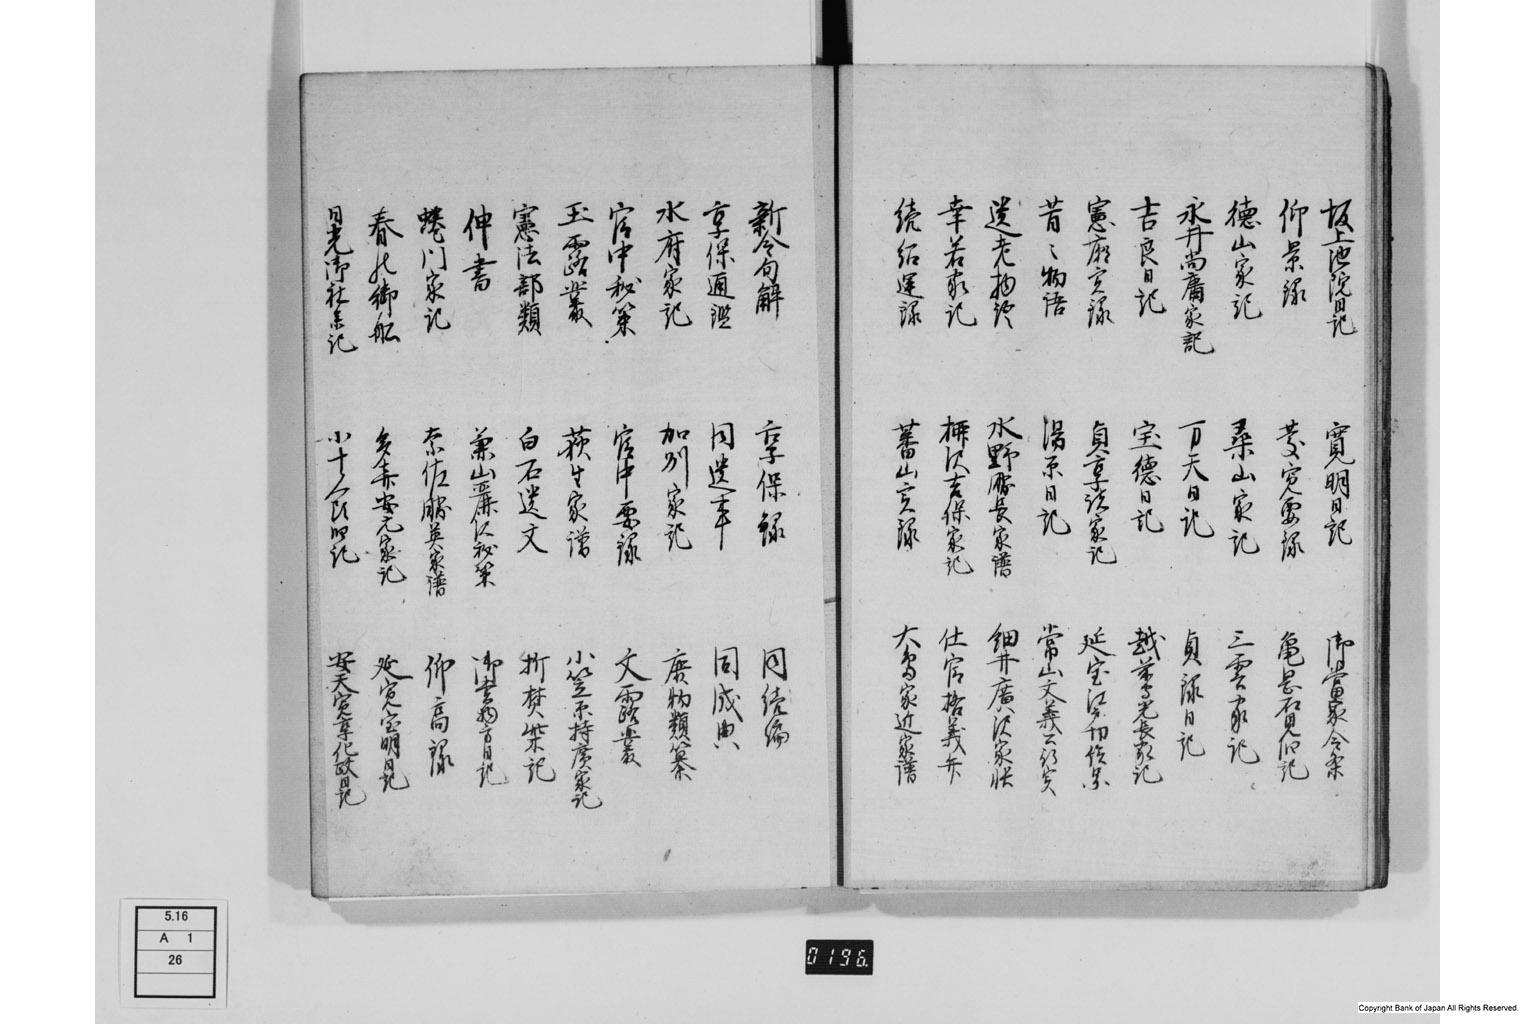 坂上池院日記
寛明日記
御当家令条
仰景録
慶寛要録
亀忌石見旧記
徳山家記
桑山家記
三雲家記
永井尚庸家記
万天日記
貞録日記
吉良日記
宝徳日記
越前光長家記
憲廟実録
貞享諸家記
昔々物語
湯原日記
常山文義公行実
遺老物語
水野勝長家譜
細井廣沢家状
幸若家記
柳沢吉保家記
仕官格義弁
続紹運録
蕃山実録
大島家近家譜
新令句解
享保録
同続編
享保通鑑
同遺事
同成典
水府家記
加列家記
庶物類纂
官中秘策
官中要録
文露叢
玉露叢
荻生家譜
小笠原持廣家記
憲法部類
白石遺文
折焚柴記
伸書
兼山麗沢秘策
御書物方日記
蜷川家記
奈佐勝英家譜
仰高録
春の御船
多喜安元家記
延寛宝明日記
日光御社参記
小十人
安天寛享化政日記
5.16
A 1
26
0196.
Copyright Bank of Japan All Rights Reserved.